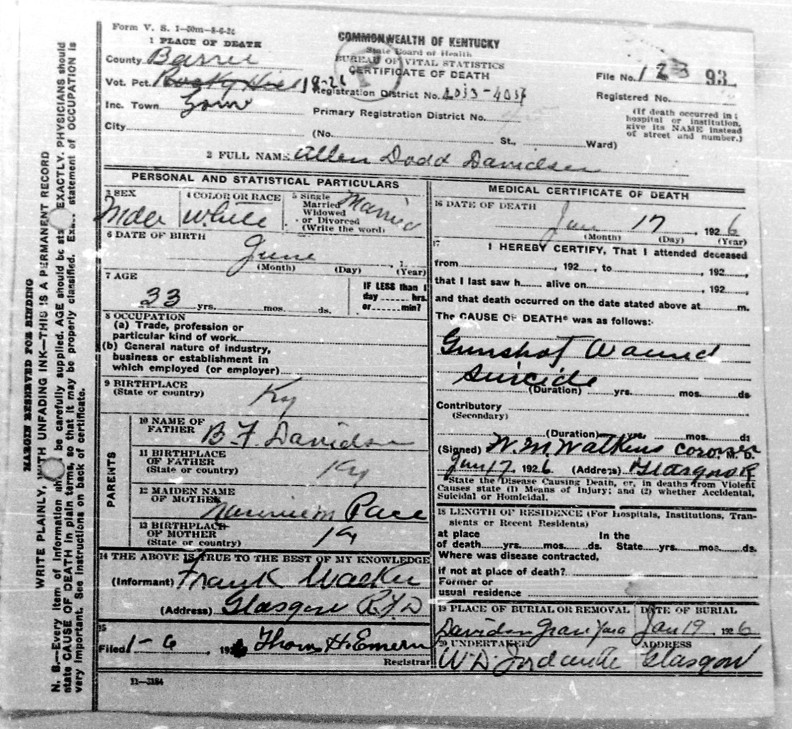 Form V. S. 1-50m-8-6-24
COMMONWEALTH OF KENTUCKY
State Board of Health
BUREAU OF VITAL STATISTICS
CERTIFICATE OF DEATH
1 PLACE OF DEATH
County Barren
Vot. Pct. Rocky Hill
Inc. Town
City
Registration District No.
Primary Registration District No.
File No. 1 2 3 93
Registered No.
(No. St., Ward)
(If death occurred in a hospital or institution, give its NAME instead of street and number.)
2 FULL NAME Allen Dodd Davidson
PERSONAL AND STATISTICAL PARTICULARS
3 SEX Male
4 COLOR OR RACE White
5 Single Married Widowed or Divorced (Write the word) Married
6 DATE OF BIRTH June
(Month) (Day) (Year)
7 AGE 33 yrs. mos. ds.
IF LESS than 1 day hrs. or min?
8 OCCUPATION
(a) Trade, profession or particular kind of work
(b) General nature of industry, business or establishment in which employed (or employer)
9 BIRTHPLACE (State or country) Ky
PARENTS
10 NAME OF FATHER B. F. Davidson
11 BIRTHPLACE OF FATHER (State or country) Ky
12 MAIDEN NAME OF MOTHER Pace
13 BIRTHPLACE OF MOTHER (State or country) Ky
14 THE ABOVE IS TRUE TO THE BEST OF MY KNOWLEDGE
(Informant) Frank Walker
(Address) Glasgow R.F.D
15
Filed 1-6 192 Thom H. Emern
Registrar
21-3184
MEDICAL CERTIFICATE OF DEATH
16 DATE OF DEATH Jan 17 1926
(Month) (Day) (Year)
17 I HEREBY CERTIFY, That I attended deceased
from , 192 , to , 192 ,
that I last saw h alive on , 192 ,
and that death occurred on the date stated above at m.
The CAUSE OF DEATH* was as follows:
Gunshot Wound
Suicide
(Duration) yrs. mos. ds
Contributory
(Secondary)
(Duration) yrs. mos. ds
(Signed) W. M Watkins coroner
Jan 17 1926 (Address) Glasgow
State the Disease Causing Death, or, in deaths from Violent Causes state (1) Means of Injury; and (2) whether Accidental, Suicidal or Homicidal.
18 LENGTH OF RESIDENCE (For Hospitals, Institutions, Transients or Recent Residents)
at place of death yrs. mos. ds. In the State yrs. mos. ds.
Where was disease contracted, if not at place of death?
Former or usual residence
19 PLACE OF BURIAL OR REMOVAL Davidson Grave Yard
DATE OF BURIAL Jan 19 1926
20 UNDERTAKER
ADDRESS Glasgow
MARGIN RESERVED FOR BINDING
WRITE PLAINLY, WITH UNFADING INK—THIS IS A PERMANENT RECORD
N. B.—Every item of information should be carefully supplied. AGE should be sta EXACTLY. PHYSICIANS should
state CAUSE OF DEATH in plain terms, so that it may be properly classified. Exa statement of OCCUPATION is
very important. See instructions on back of certificate.